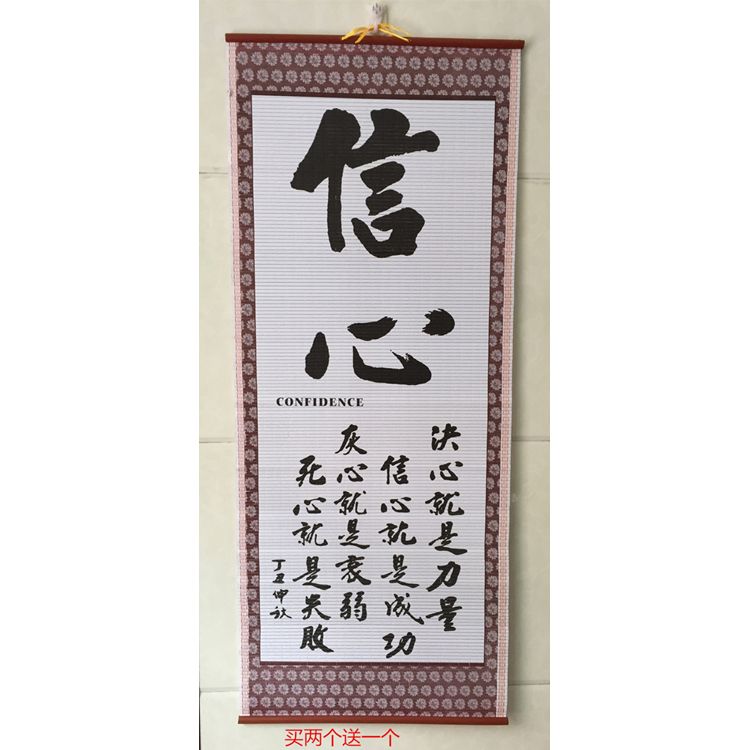 信心
CONFIDENCE
决心就是力量
信心就是成功
灰心就是衰弱
死心就是失败
丁丑仲秋
买两个送一个